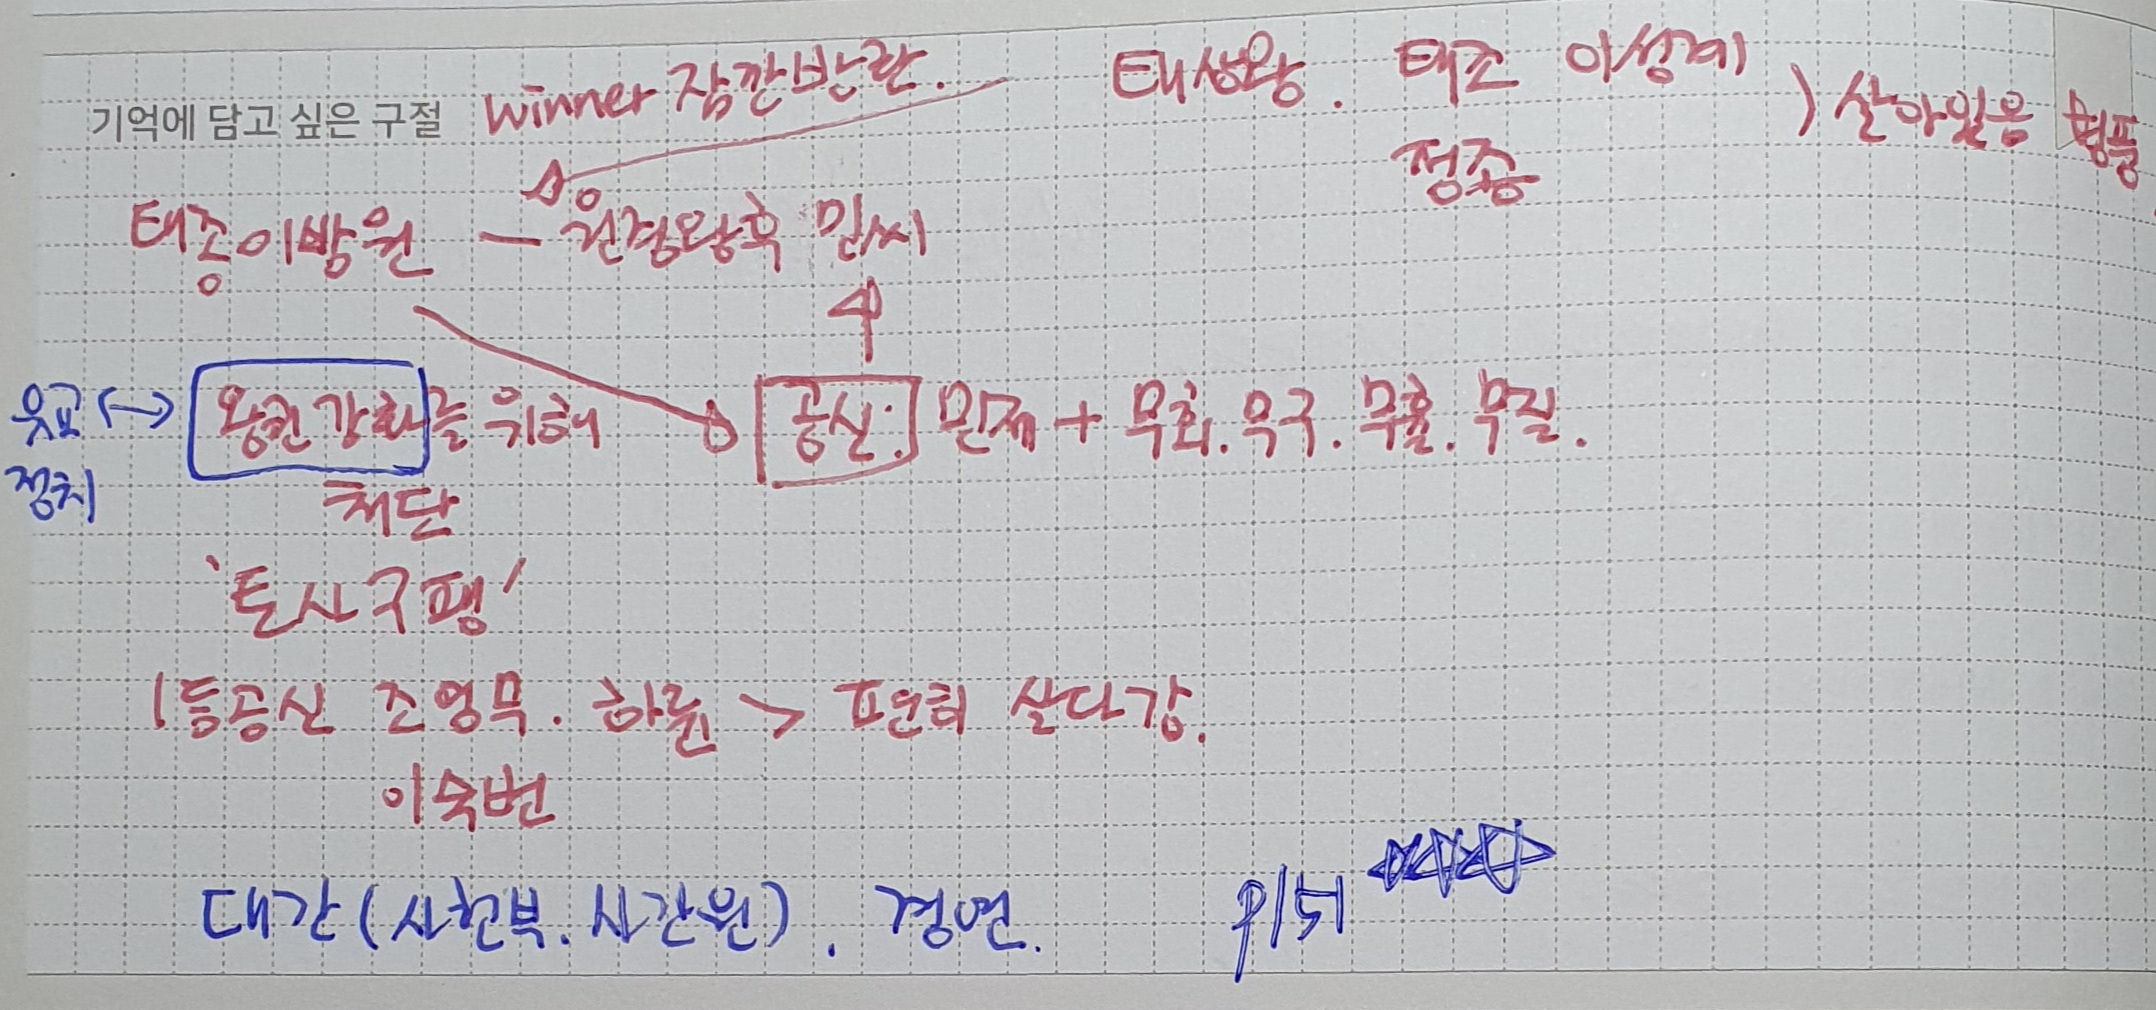 기억에 담고 싶은 구절 winner 잠깐반란. 태상왕. 태조 이성계 ) 살아있음
정종
태종이방원 — 원경왕후 민씨
유교 ↔ 왕권강화를 위해 공신: 민제 + 무회. 무구. 무휼. 무질.
정치
처단
'토사구팽'
1등공신 조영무. 하륜 > 편히 살다감.
이숙번
대간 (사헌부. 사간원). 경연.